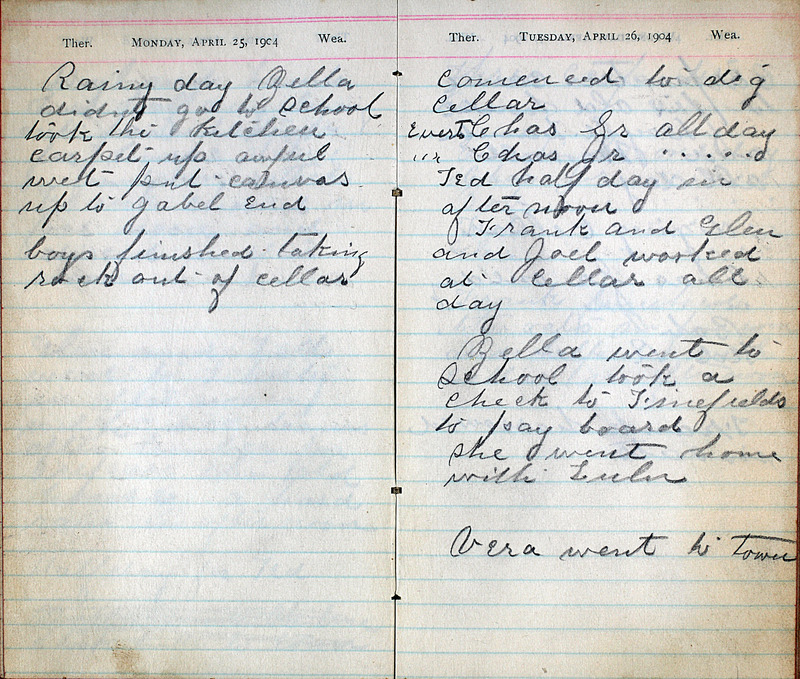 Ther. MONDAY, APRIL 25, 1904 Wea.
Rainy day Bella
didnt go to School
took the Kitchen
carpet up awful
wet put canvas
up to gabel End
boys finished taking
rock out of cellar
Ther. TUESDAY, APRIL 26, 1904 Wea.
comenced to dig
cellar
Chas Jr all day
" Chas Jr . . . . . .
Ted half day in
after noon
Frank and Glen
and Joel worked
at Cellar all
day
Bella went to
School took a
check to
to pay board
she went home
with Lulu
Vera went to town